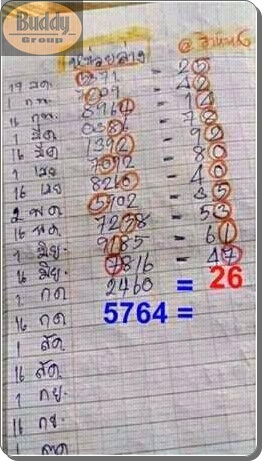 Buddy
Group
17 มค 0271 - 25
1 กพ 7009 - 42
16 กพ 8964 - 14
1 มีค 0586 - 78
16 มีค 1392 - 92
1 เมย 7092 - 80
16 เมย 8260 - 40
2 พค 5902 - 35
16 พค 7238 - 53
1 มิย. 9185 - 61
16 มิย. 7816 - 47
1 กค 2460 = 26
16 กค 5764 =
1 สค
16 สค
1 กย.
16 กย.
1